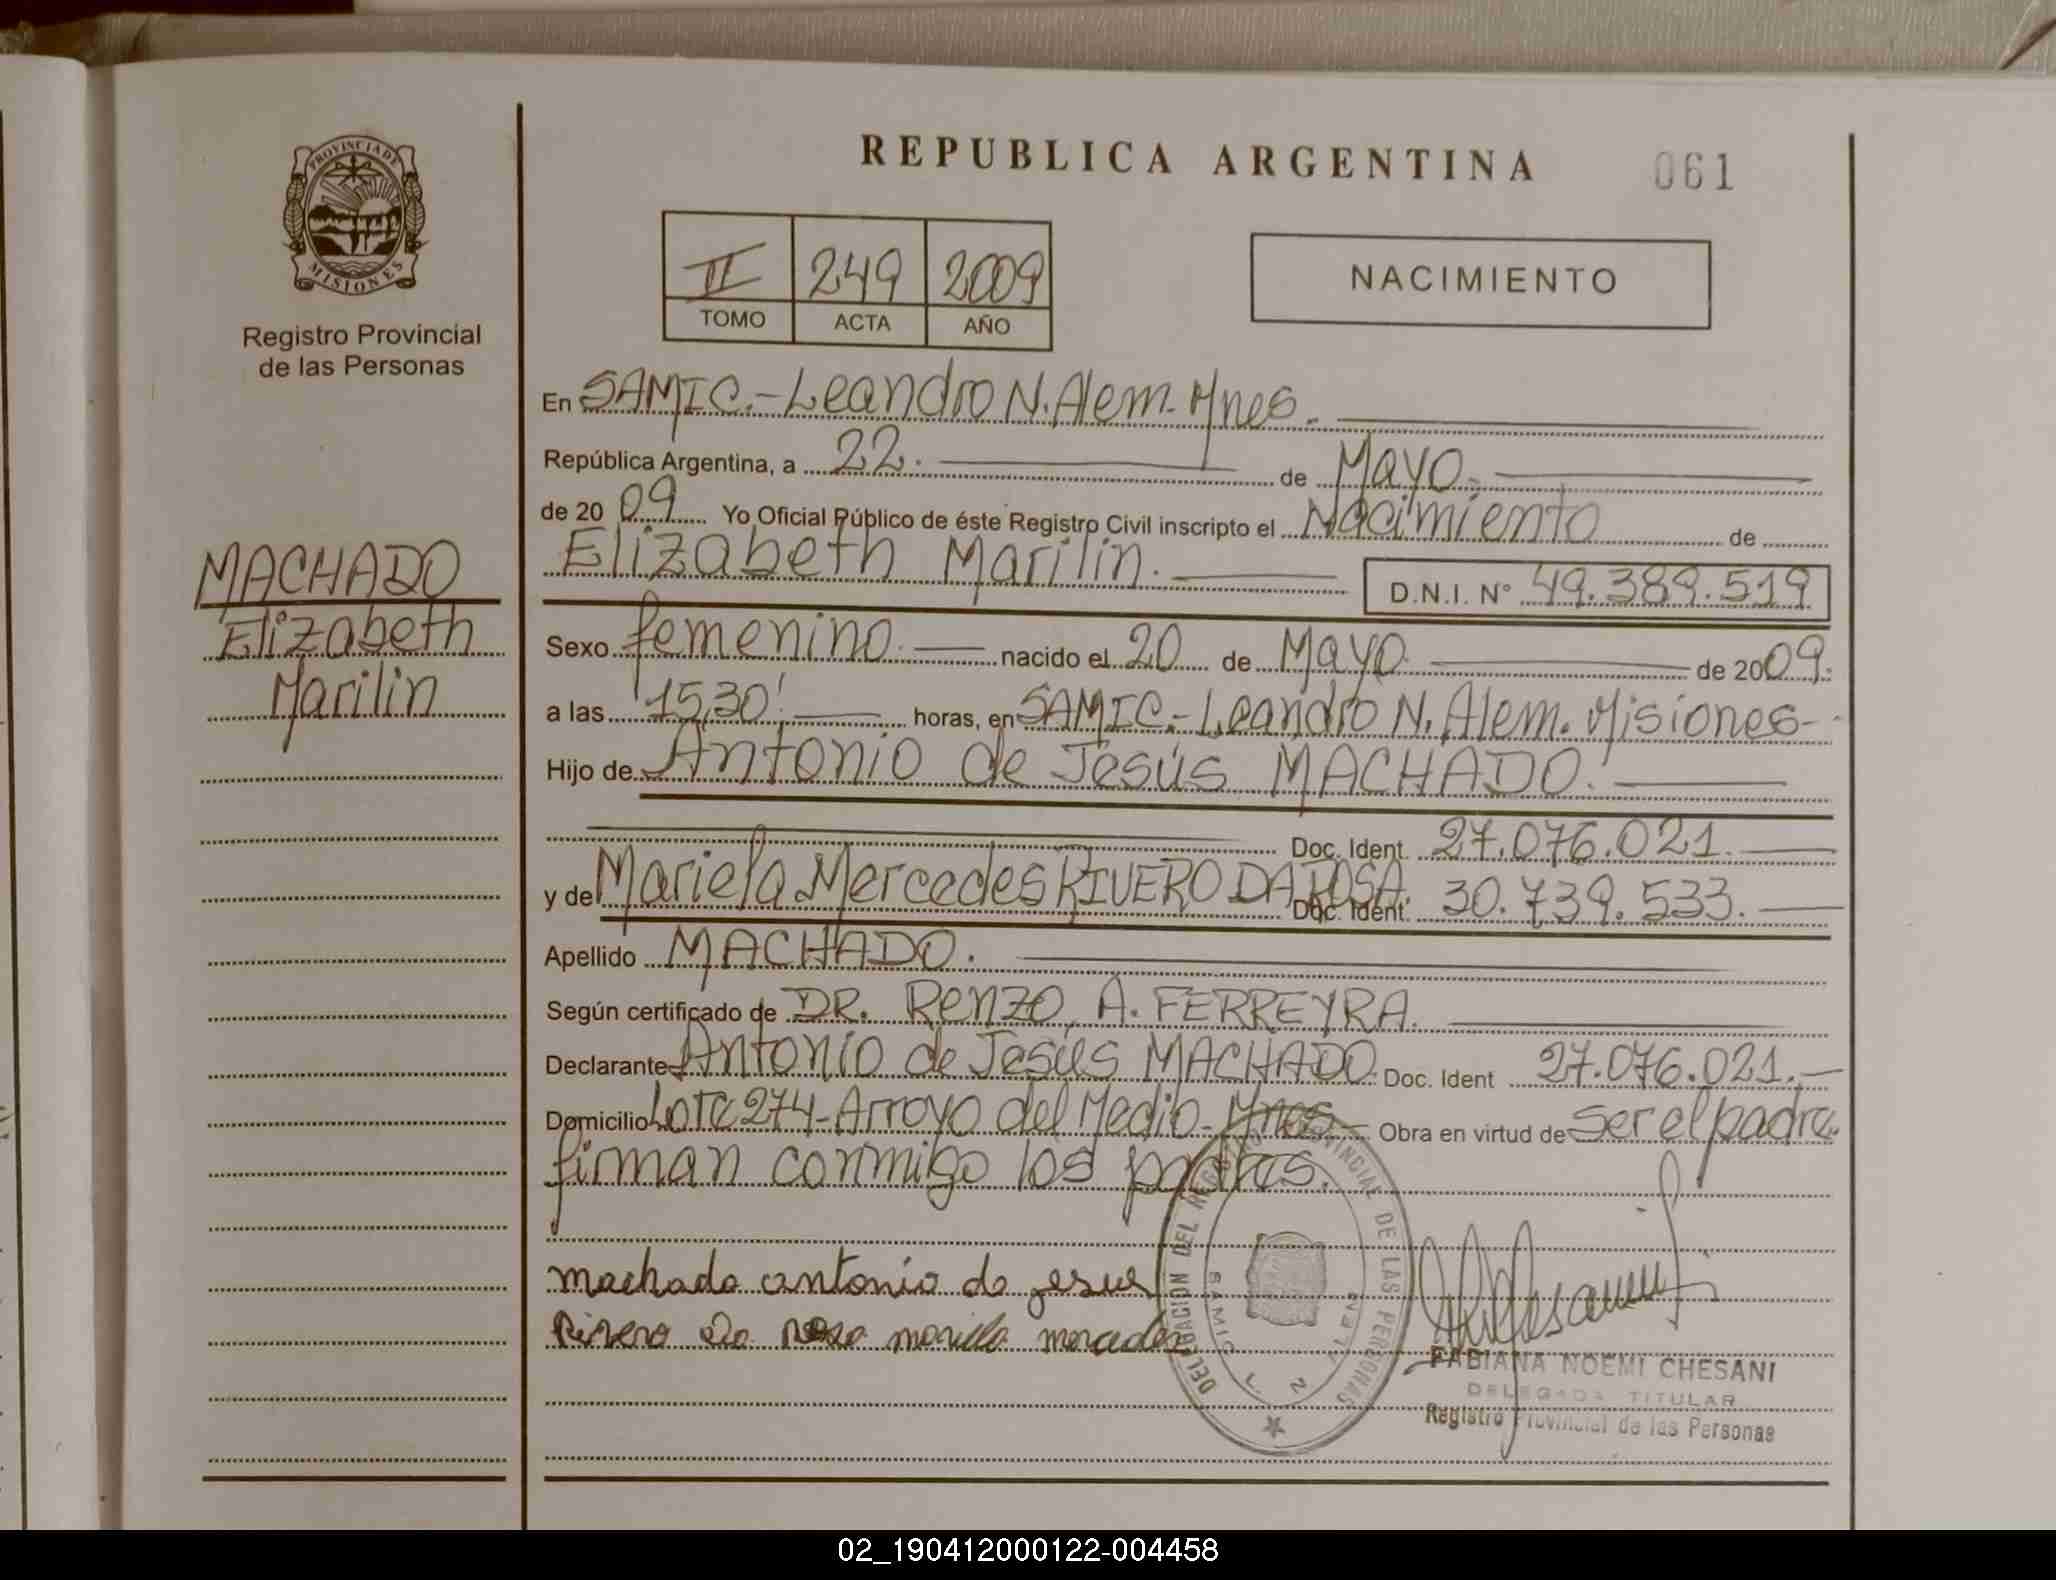 REPUBLICA ARGENTINA
061
PROVINCIA DE
MISIONES
Registro Provincial
de las Personas
II 249 2009
TOMO ACTA AÑO
NACIMIENTO
En SAMIC.-Leandro N. Alem. Mnes.
República Argentina, a 22. de Mayo.
de 2009 Yo Oficial Público de éste Registro Civil inscripto el Nacimiento de
Elizabeth Marilin. D.N.I. N° 49.389.519
MACHADO
Elizabeth
Marilin
Sexo femenino. nacido el 20 de Mayo. de 2009.
a las 15,30' horas, en SAMIC.-Leandro N. Alem. Misiones-
Hijo de Antonio de Jesús MACHADO.
Doc. Ident. 27.076.021.
y de Mariela Mercedes RIVERO DA ROSA. Doc. Ident. 30.739.533.
Apellido MACHADO.
Según certificado de DR. Renzo A. FERREYRA.
Declarante Antonio de Jesús MACHADO. Doc. Ident 27.076.021.-
Domicilio Lote 274-Arroyo del Medio-Mnes Obra en virtud de ser el padre.
firman conmigo los padres.
machado antonio de jesus
Rivero Da Rosa mariela mercedes
DELEGACION DEL REGISTRO PROVINCIAL DE LAS PERSONAS
SAMIC L. N.
FABIANA NOEMI CHESANI
DELEGADA TITULAR
Registro Provincial de las Personas
02_190412000122-004458